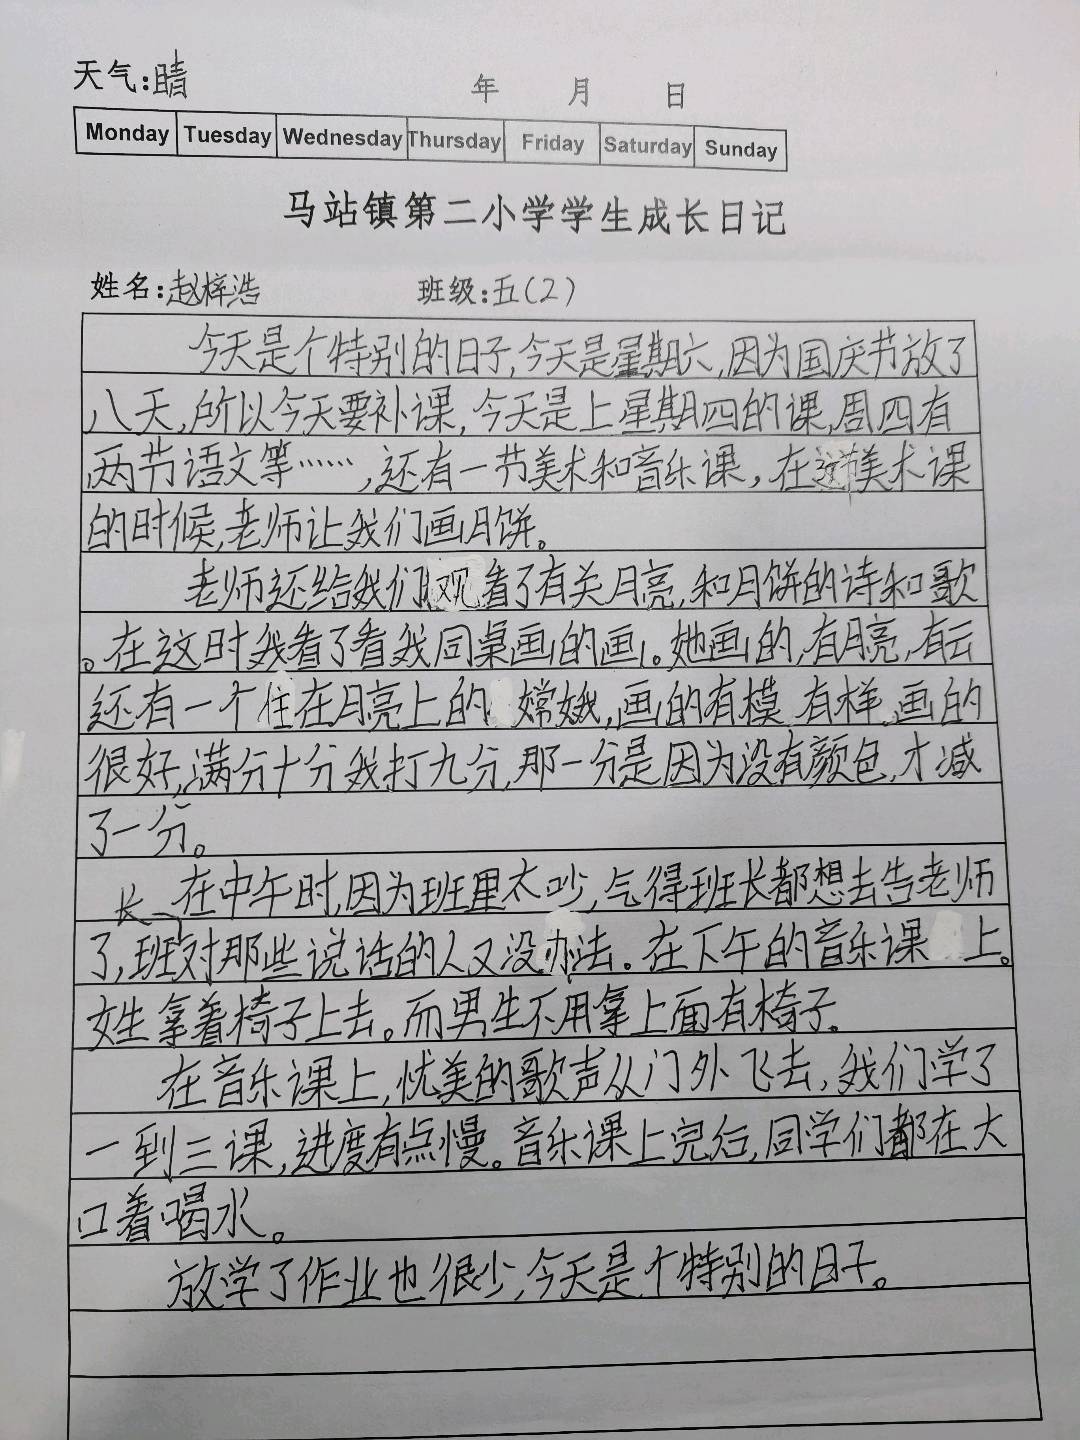 天气:晴 年 月 日
Monday Tuesday Wednesday Thursday Friday Saturday Sunday
马站镇第二小学学生成长日记
姓名:赵梓浩 班级:五(2)
今天是个特别的日子,今天是星期六,因为国庆节放了
八天,所以今天要补课,今天是上星期四的课,周四有
两节语文等……,还有一节美术和音乐课,在这节美术课
的时候,老师让我们画月饼。
老师还给我们观看了有关月亮,和月饼的诗和歌
。在这时我看了看我同桌画的画。她画的,有月亮,有云
还有一个住在月亮上的嫦娥,画的有模有样。画的
很好,满分十分我打九分,那一分是因为没有颜色,才减
了一分。
在中午时,因为班里太吵,气得班长都想去告老师
了,班长对那些说话的人又没办法。在下午的音乐课上。
女生拿着椅子上去。而男生不用拿上面有椅子。
在音乐课上,优美的歌声从门外飞去,我们学了
一到三课,进度有点慢。音乐课上完后,同学们都在大
口着喝水。
放学了作业也很少,今天是个特别的日子。